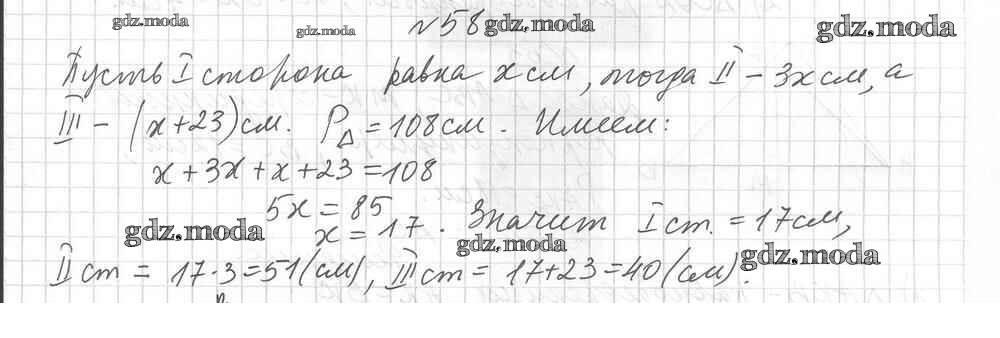 gdz.moda gdz.moda №58 gdz.moda gdz.moda
Пусть I сторона равна x см, тогда II – 3x см, а
III – (x+23) см. P△ = 108 см. Имеем:
x + 3x + x + 23 = 108
5x = 85
gdz.moda x = 17. Значит I ст. = 17 см,
gdz.moda gdz.moda
II ст = 17·3 = 51 (см), III ст = 17+23 = 40 (см).